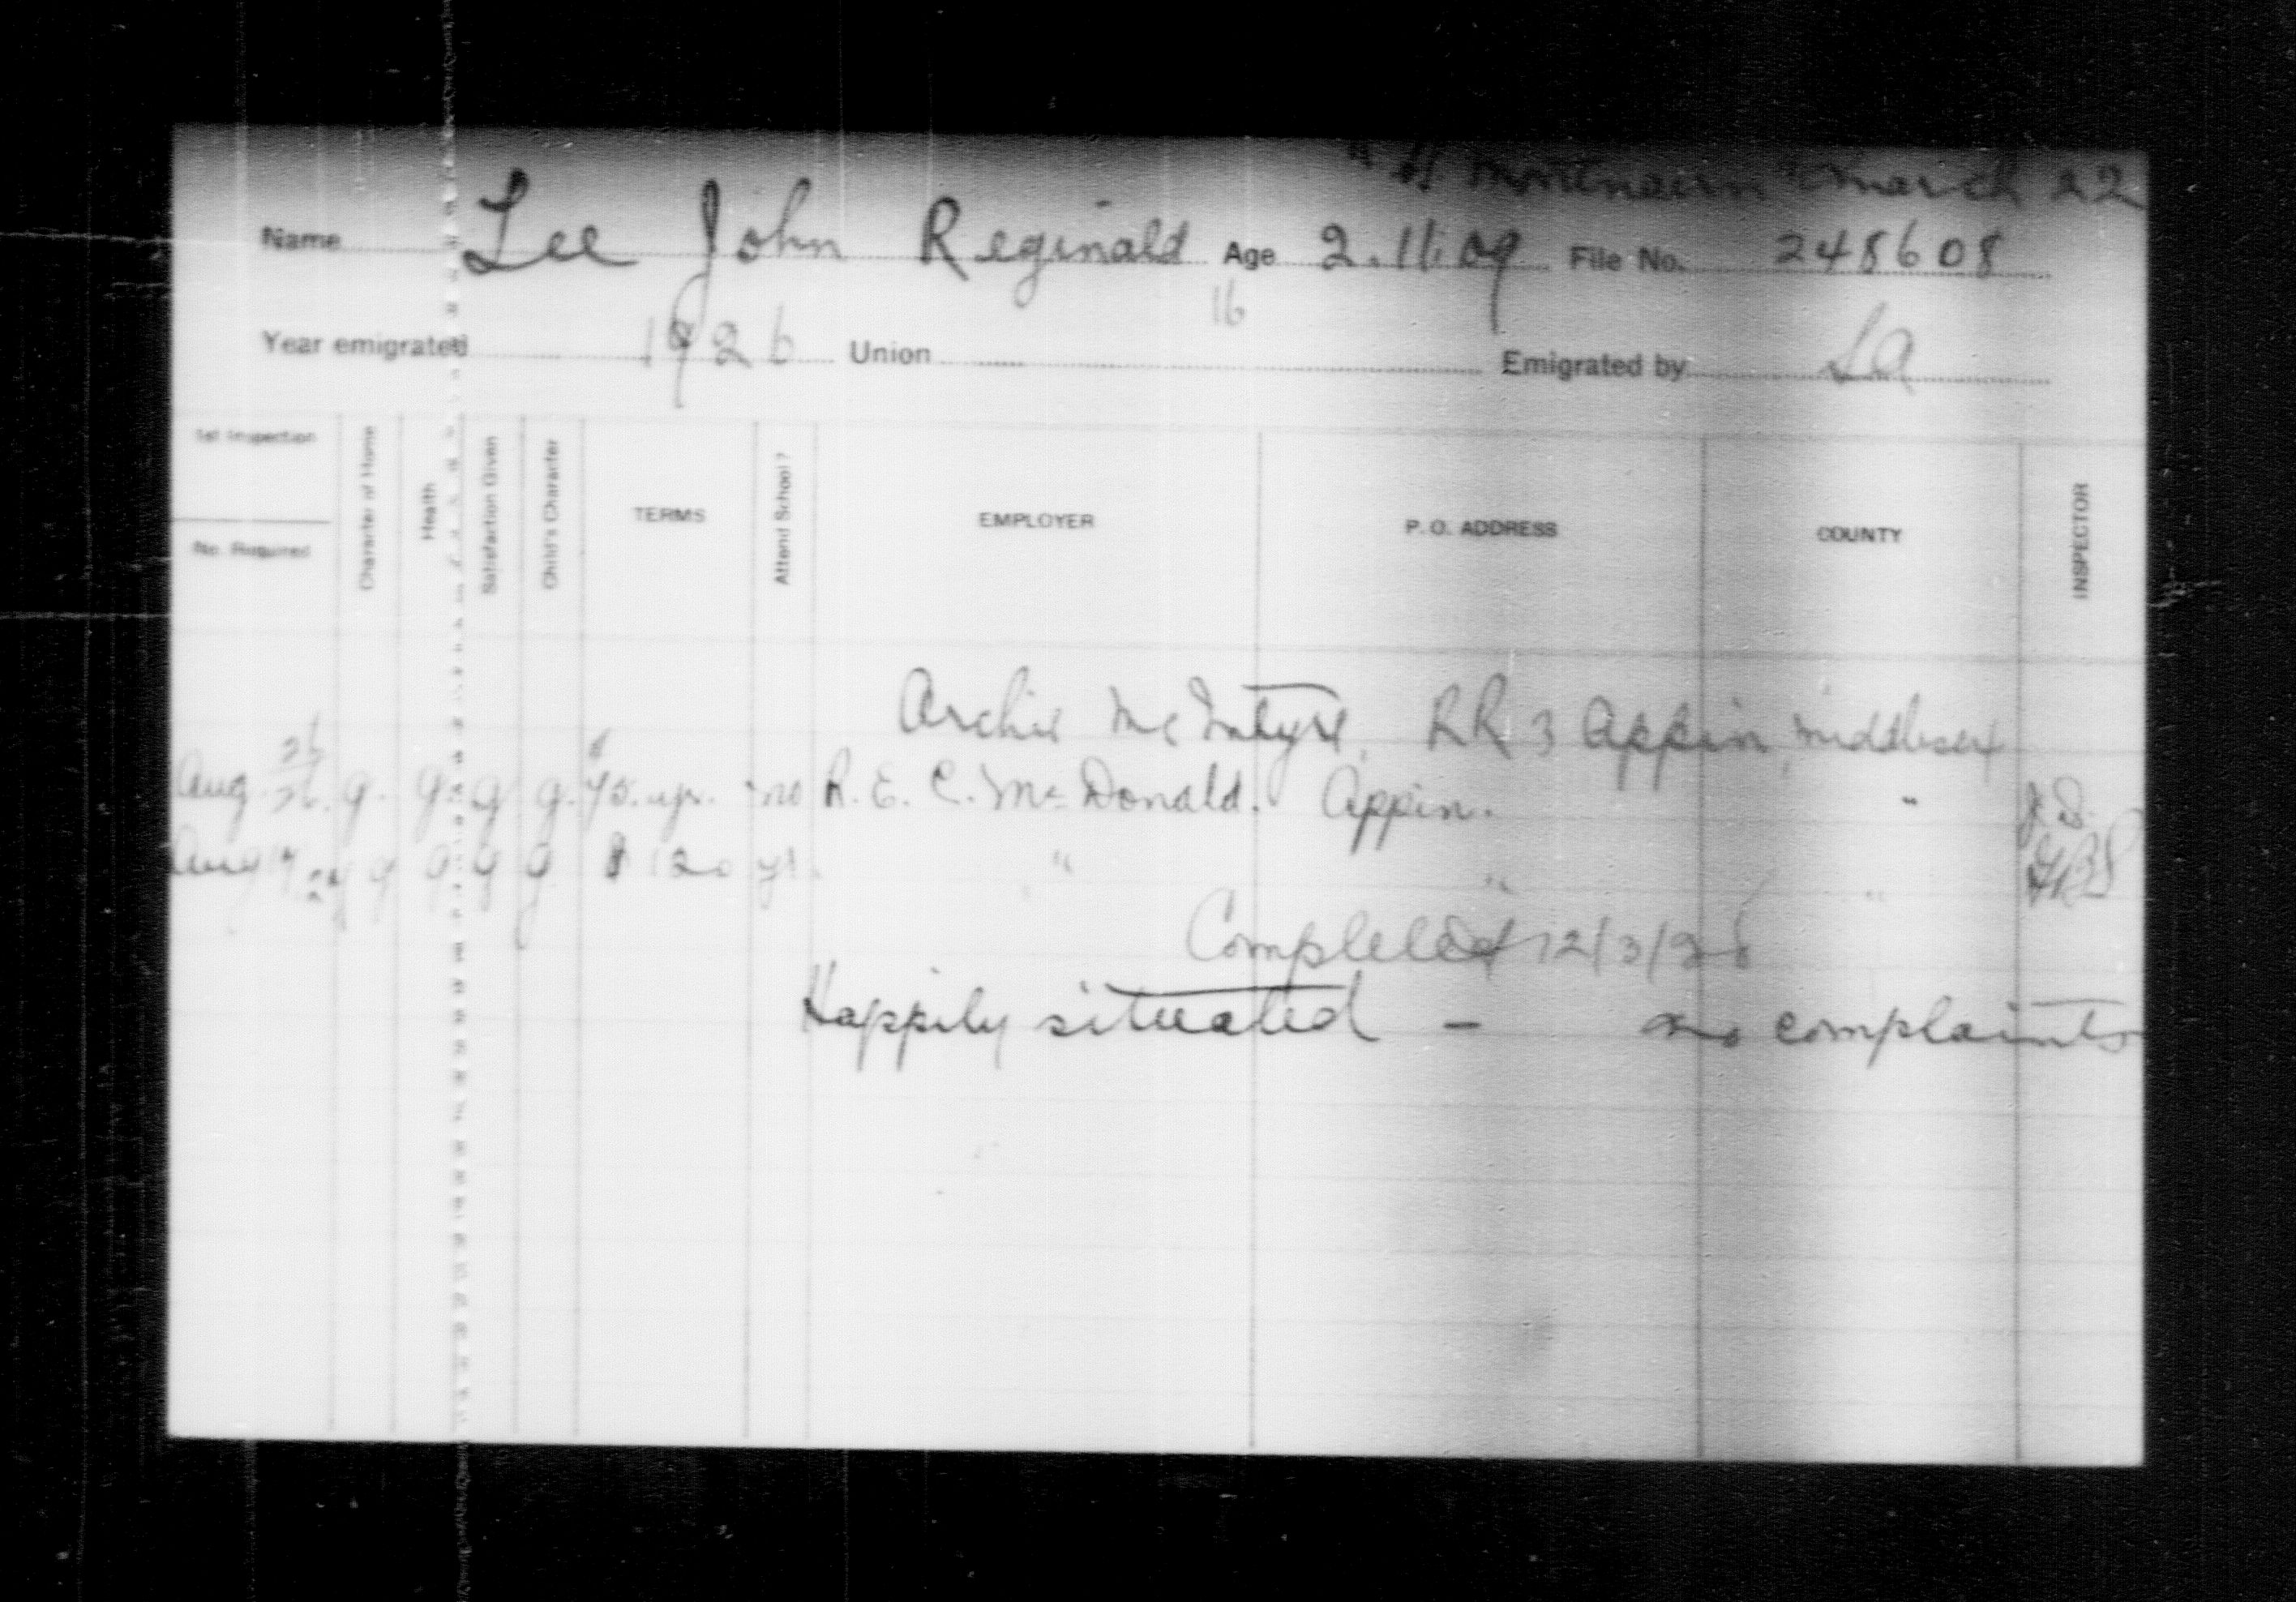 March 22
Name Lee John Reginald Age 2.11.09 File No. 248608
16
Year emigrated 1926 Union Emigrated by SA
1st Inspection
No. Required
Character of Home
Health
Satisfaction Given
Child's Character
TERMS
Attend School?
EMPLOYER
P. O. ADDRESS
COUNTY
INSPECTOR
Archie McIntyre, RR 3 Appin, Middlesex
Aug 26 g. g. g g. 75. yr. no R. E. C. McDonald. Appin. "
Aug 17 g g g g $ 120 yr. " " "
Completed 12/3/28
Happily situated - no complaints